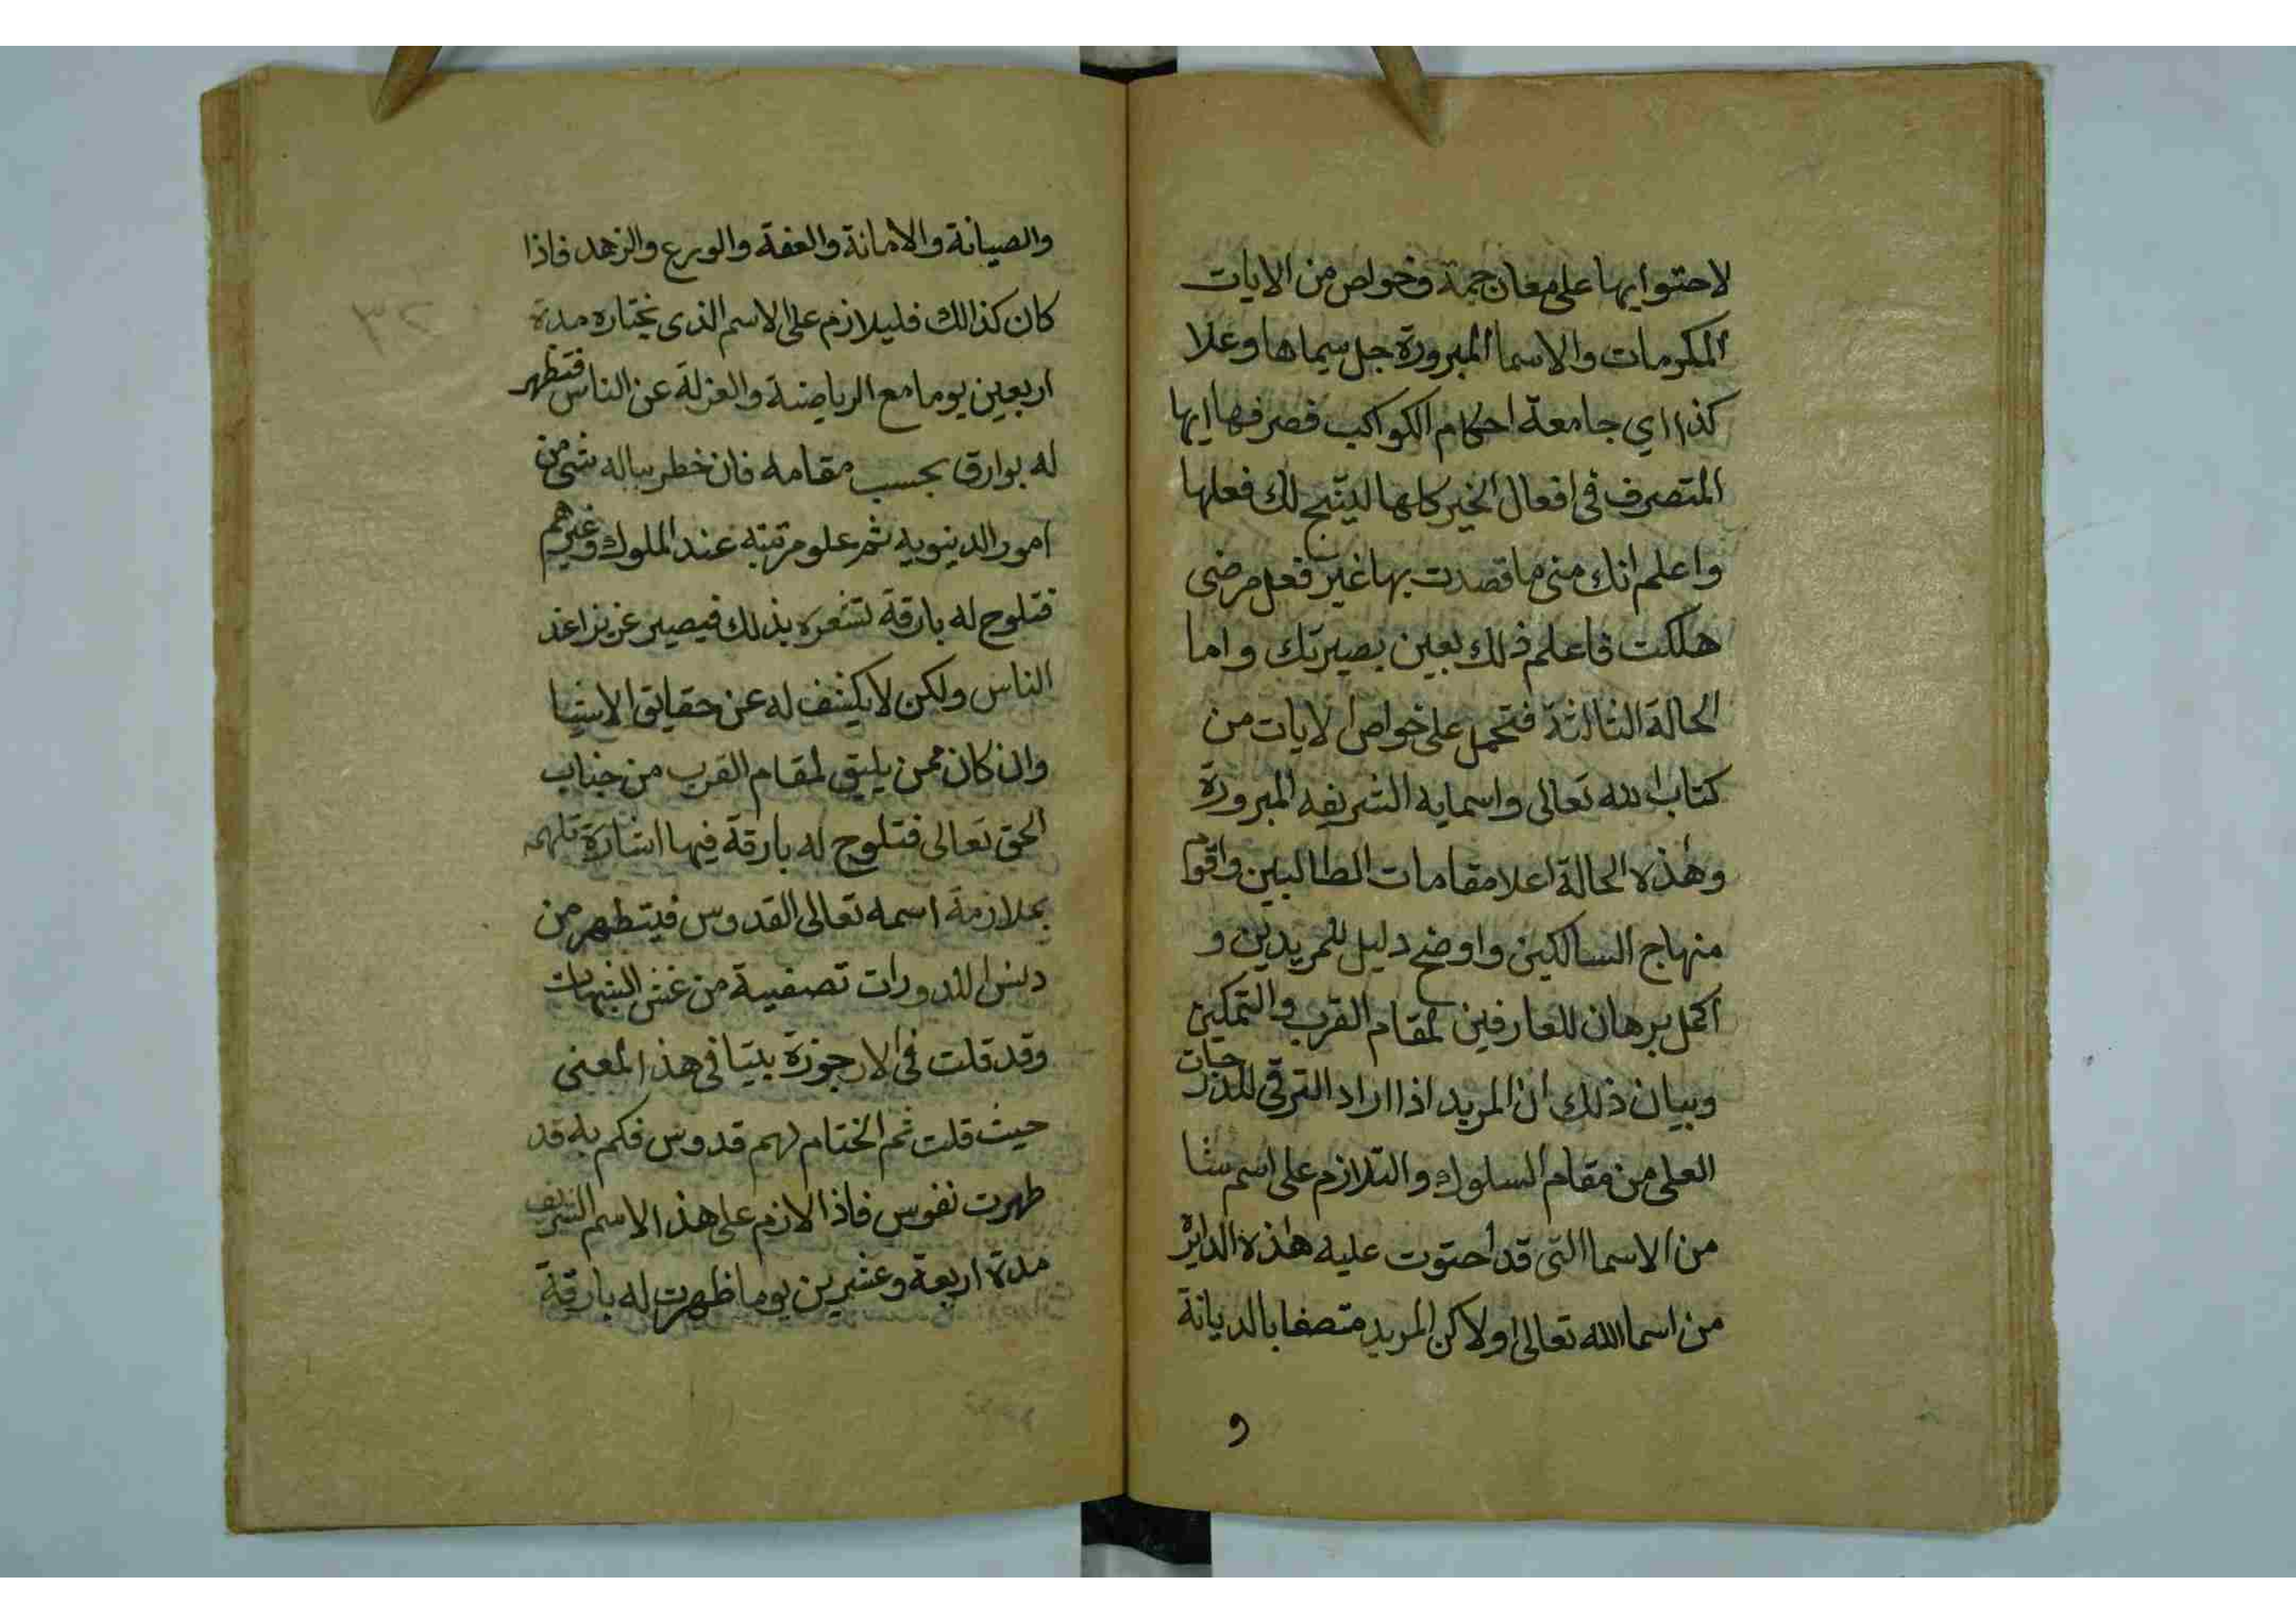 لاحتوايها على معان جمة وخواص من الايات
المكرمات والاسما المبرورة جل سيماها وعلا
كذا اي جامعة احكام الكواكب فصرفها ايها
المتصرف في افعال الخير كلها لينتج لك فعلها
واعلم انك متى ما قصدت بها غير فعل مرضى
هلكت فاعلم ذلك بعين بصيرتك واما
الحالة الثالثة فتحمل على خواص الايات من
كتاب الله تعالى واسمايه الشريفه المبرورة
وهذه الحالة اعلا مقامات الطالبين واقوم
منهاج السالكين واوضح دليل للمريدين و
اكمل برهان للعارفين لمقام القرب والتمكين
وبيان ذلك ان المريد اذا اراد الترقى للدرجات
العلى من مقام السلوك والتلازم على اسم شا
من الاسما التى قد احتوت عليه هذه الدايرة
من اسما الله تعالى اولا كن المريد متصفا بالديانة
و
والصيانة والامانة والعفة والورع والزهد فاذا
كان كذالك فليلازم على الاسم الذى يختاره مدة
اربعين يوما مع الرياضة والعزلة عن الناس فتظهر
له بوارق بحسب مقامه فان خطر بباله شى من
امور الدينويه ثمر علو مرتبته عند الملوك وغيرهم
فتلوح له بارقة تشعره بذلك فيصير عزيزا عند
الناس ولكن لا يكشف له عن حقايق الاشيا
وان كان ممن يليق لمقام القرب من جناب
الحق تعالى فتلوح له بارقة فيها اشارة تلهمه
بملازمة اسمه تعالى القدوس فيتطهر من
دنس تصفية من غش الشبهات
وقد قلت فى الارجوزة بيتا فى هذا المعنى
حيث قلت ثم الختام لهم قدوس فكم به قد
طهرت نفوس فاذا الازم على هذا الاسم الشريف
مدة اربعة وعشرين يوما ظهرت له بارقة
٢٣